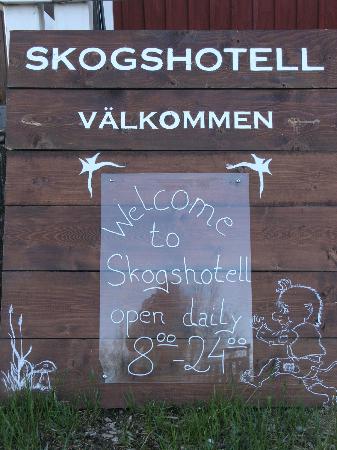 SKOGSHOTELL
VÄLKOMMEN
Welcome
to
Skogshotell
open daily
8⁰⁰-24⁰⁰